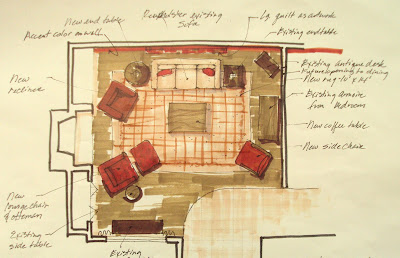 New end table
Accent color on wall
existing
Sofa
Lg. quilt as artwork
Existing end table
Existing antique desk
Future opening to dining
New rug - 10' x
Existing armoire
from Bedroom
New coffee table
New side chair
New
recliner
New
lounge chair
& ottoman
Existing
side table
Existing